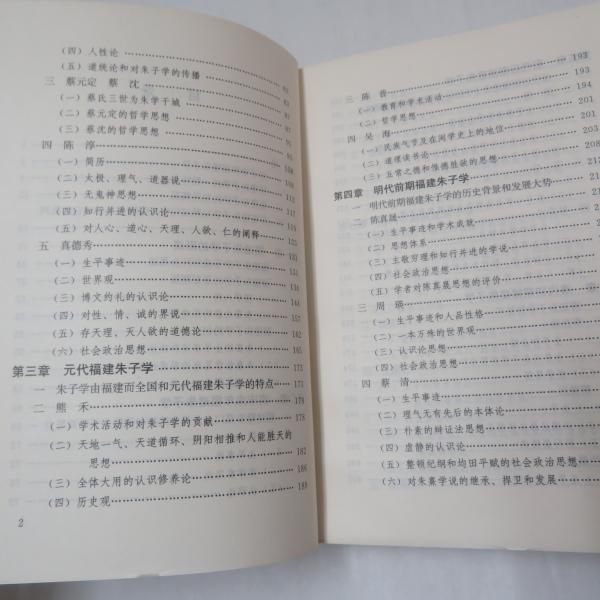 （四）人性论
（五）道统论和对朱子学的传播
三　蔡元定　蔡　沈
（一）蔡氏三世为朱学干城
（二）蔡元定的哲学思想
（三）蔡沈的哲学思想
四　陈　淳
（一）简历
（二）太极、理气、道器说
（三）无鬼神思想
（四）知行并进的认识论
（五）对人心、道心、天理、人欲、仁的阐释
五　真德秀
（一）生平事迹
（二）世界观
（三）博文约礼的认识论
（四）对性、情、诚的界说 157
（五）存天理、灭人欲的道德论 162
（六）社会政治思想 165
第三章　元代福建朱子学 171
一　朱子学由福建而全国和元代福建朱子学的特点 171
二　熊　禾 178
（一）学术活动和对朱子学的贡献 178
（二）天地一气、天道循环、阴阳相推和人能胜天的
思想 182
（三）全体大用的认识修养论 186
（四）历史观 189
2
三　陈　普 193
（一）教育和学术活动 193
（二）哲学思想 194
四　吴　海 201
（一）民族气节及在闽学史上的地位 201
（二）道理读书论
（三）五常之德和惟德胜欲的思想 208
第四章　明代前期福建朱子学
一　明代前期福建朱子学的历史背景和发展大势
二　陈真晟
（一）生平事迹和学术成就
（二）思想体系
（三）主敬穷理和知行并进的学说
（四）社会政治思想
（五）学者对陈真晟思想的评价
三　周　瑛
（一）生平事迹和人品性格
（二）一本万殊的世界观
（三）认识论思想
（四）社会政治思想
四　蔡　清
（一）生平事迹
（二）理气无有先后的本体论
（三）朴素的辩证法思想
（四）虚静的认识论
（五）整顿纪纲和均田平赋的社会政治思想
（六）对朱熹学说的继承、捍卫和发展